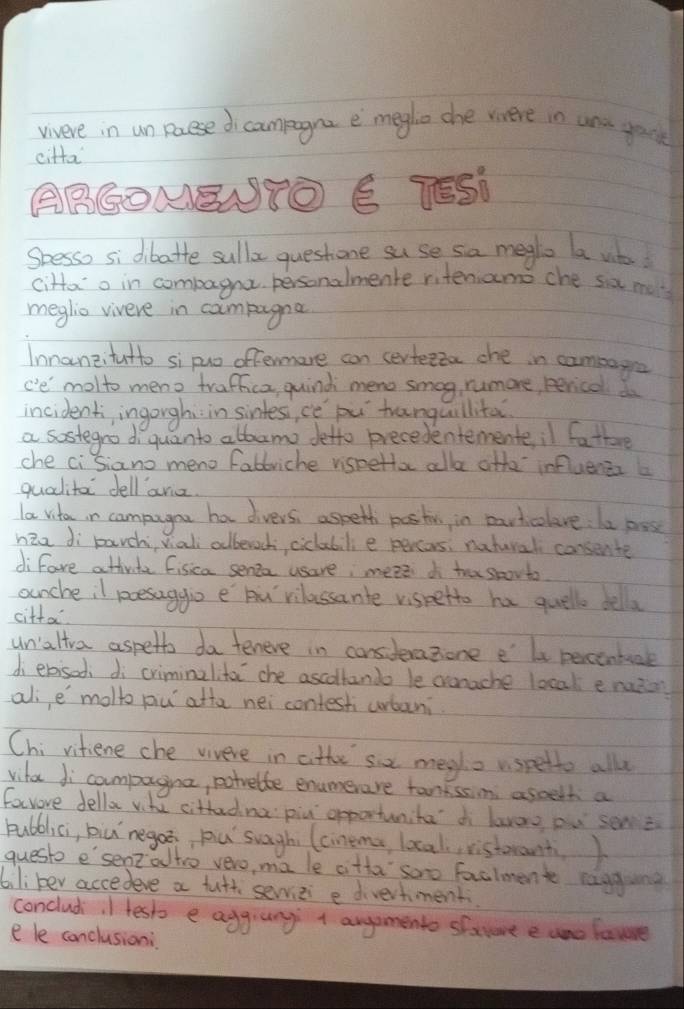 vivere in un paese di campagna è meglio che vivere in una grande
città
ARGOMENTO E TESI
Spesso si dibatte sulla questione su se sia meglio la vita
città o in campagna. personalmente riteniamo che sia
meglio vivere in campagna.
Innanzitutto si può affermare con certezza che in campagna
c'è molto meno traffico, quindi meno smog, rumore, pericoli da
incidenti, ingorghi: in sintesi, c'è più tranquillità.
a sostegno di quanto abbiamo detto precedentemente, il fattore
che ci siano meno fabbriche rispetto alla città influenza la
qualità dell'aria.
la vita in campagna ha diversi aspetti positivi, in particolare: la prese
nza di parchi, viali alberati, ciclabili e percorsi naturali consente
di fare attività fisica senza usare i mezzi di trasporto.
anche il paesaggio è più rilassante rispetto ha quello della
città.
un'altra aspetto da tenere in considerazione è la percentuale
di episodi di criminalità che ascoltando le cronache locali e nazion
ali, è molto più alta nei contesti urbani.
Chi ritiene che vivere in città sia meglio rispetto alla
vita di campagna, potrebbe enumerare tantissimi aspetti a
favore della vita cittadina: più opportunità di lavoro, più servizi
pubblici, più negozi, più svaghi (cinema, locali, ristoranti, )
questo è senz'altro vero, ma le città sono facilmente raggiungi
bili per accedere a tutti servizi e divertimenti.
concludi il testo e aggiungi 1 argomento sfavore e uno favore
e le conclusioni.